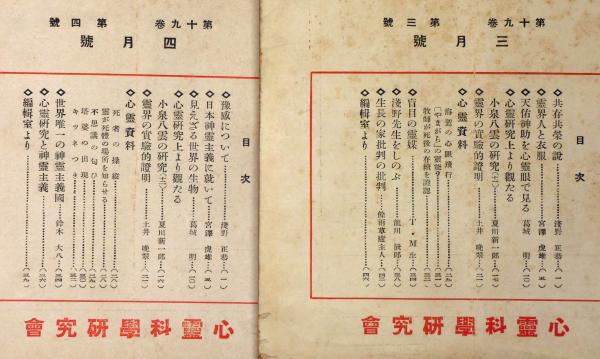 第十九卷 第三號
三月號
目次
◇共存共榮の說………淺野 正恭…(一)
◇靈界人と衣服………宮澤 虎雄…(五)
◇天佑神助を心靈眼で見る 葛城 明…(一〇)
心靈硏究上より觀たる
◇小泉八雲の硏究(十二)…夏川新一郎…(一七)
◇靈界の實驗的證明………土井 晚翠…(二一)
◇心靈資料
海葉の心眼旅行………(二九)
「やまがら」の靈能?………(三一)
牧師が死後の存續を證認………(三三)
◇盲目の靈媒………T・M生…(三四)
◇淺野先生をしのぶ………
◇生長の家批判の批判………
◇編輯室より………(四六)
心靈科學硏究會
第十九卷 第四號
四月號
目次
◇豫感について………淺野 正恭…(一)
◇日本神靈主義に就いて…宮澤 虎雄…(五)
◇見えざる世界の生物………葛城 明…(一〇)
心靈硏究上より觀たる
◇小泉八雲の硏究(十三)…夏川新一郎…(一六)
◇靈界の實驗的證明………土井 晚翠…(二一)
◇心靈資料
死者の操縱………(二八)
靈が死體の場所を知らせる………(二八)
不思議の匂ひ………(二九)
塔婆の出現………(三〇)
キツネつき………(三二)
◇世界唯一の神靈主義國…鈴木 大八…(三四)
◇心靈硏究と神靈主義………(三六)
◇編輯室より………(三九)
心靈科學硏究會